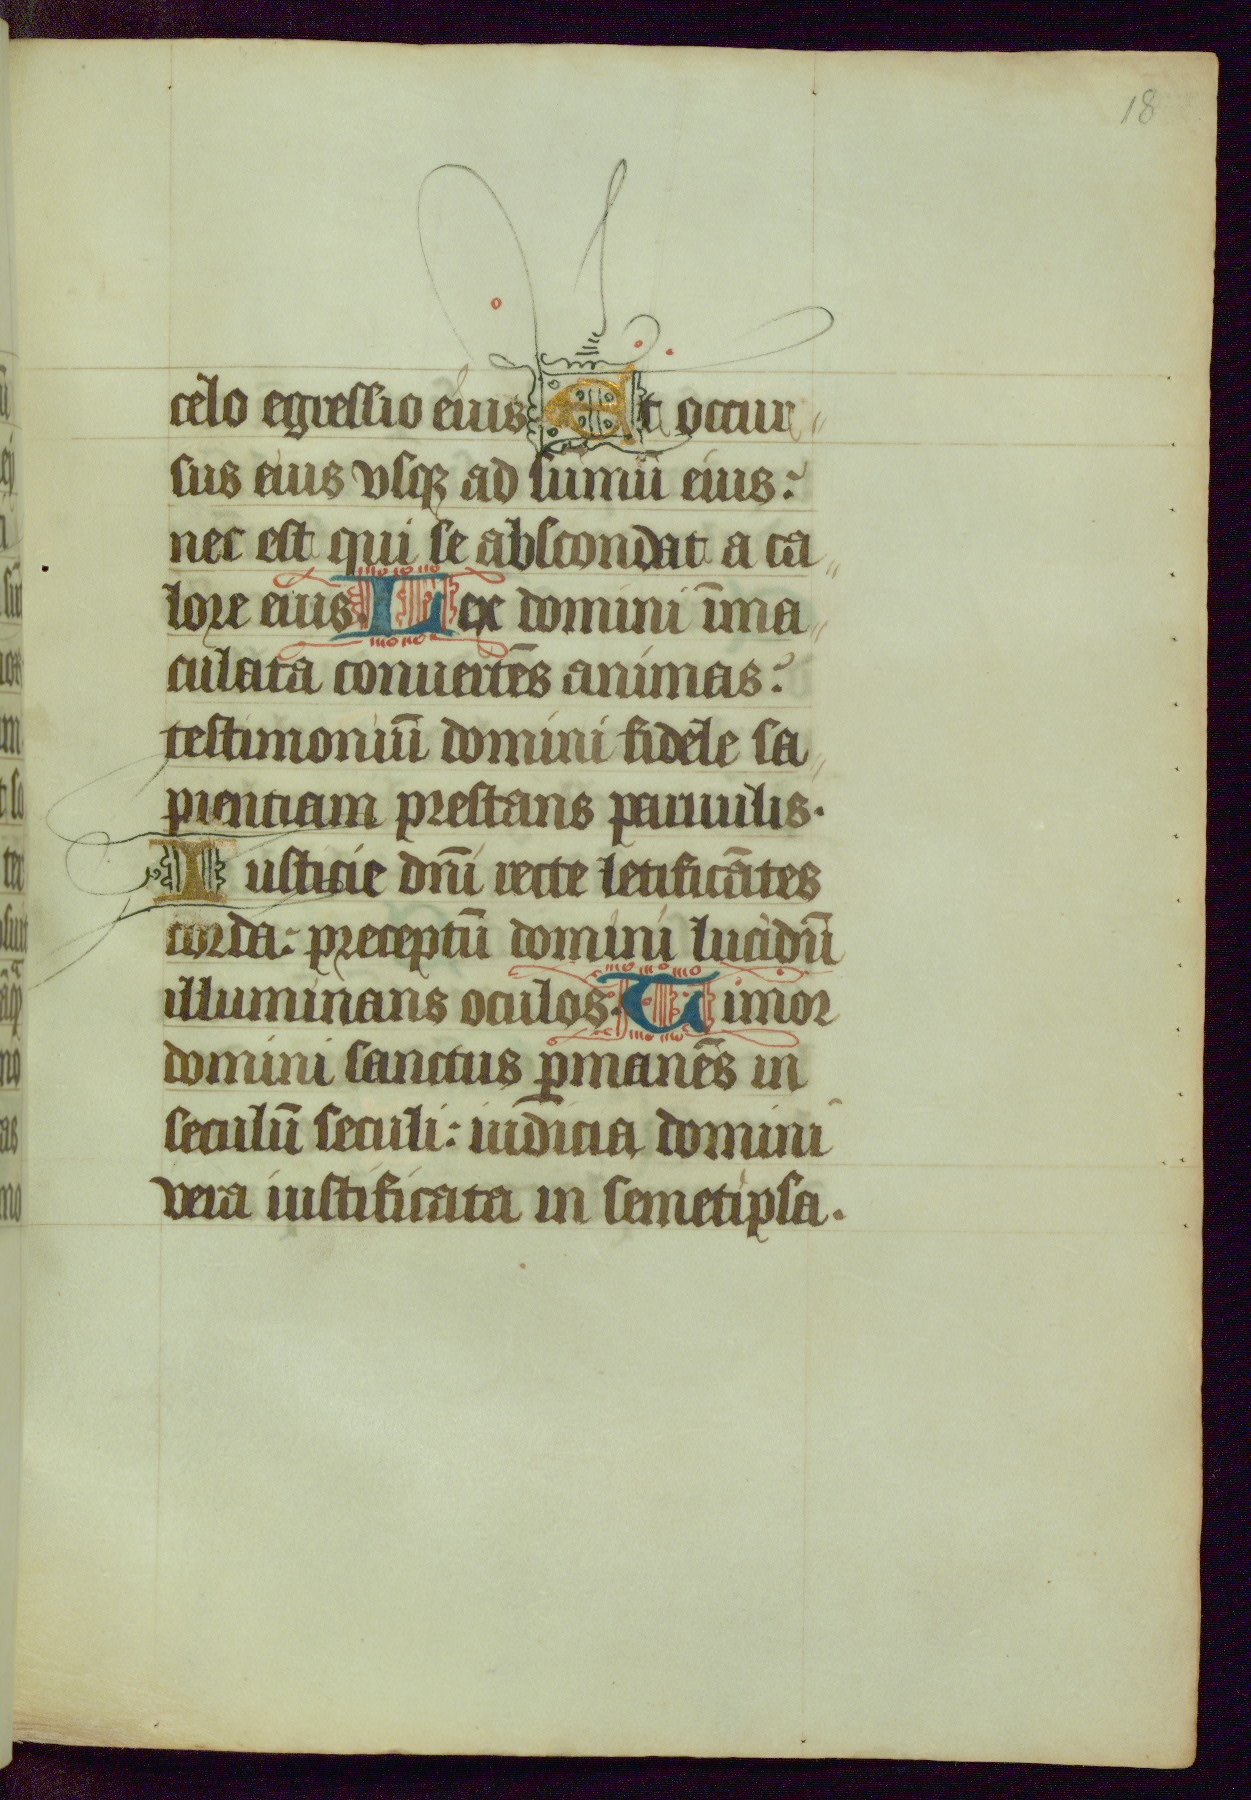 18
celo egressio eius Et occur〃
sus eius vsqꝫ ad sumū eius:
nec est qui se abscondat a ca〃
lore eius. Lex domini īma〃
culata conuertēs animas:
testimoniū domini fidele sa〃
pientiam prestans paruulis.
Iusticie dn̄i recte letificātes
corda: preceptū domini lucidū
illuminans oculos. Timor
domini sanctus ꝑmanēs in
seculū seculi: iudicia domini
vera iustificata in semetipsa.